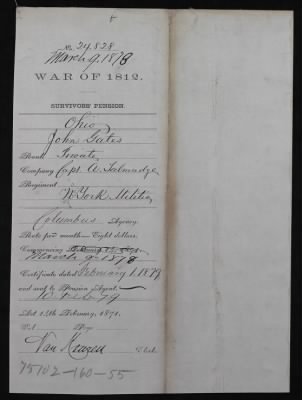 No. 24,828
March 9. 1878
WAR OF 1812.
SURVIVORS' PENSION.
Ohio
John Gates
Rank Private
Company Capt. A. Talmadge
Regiment
N York Militia
Columbus Agency.
Rate per month—Eight dollars.
Commencing
March 9. 1878
Certificate dated February 1. 1879
and sent to Pension Agent—
10 Feb 79
Act 14th February, 1871.
Vol. Page
Clerk.
75102-160-55